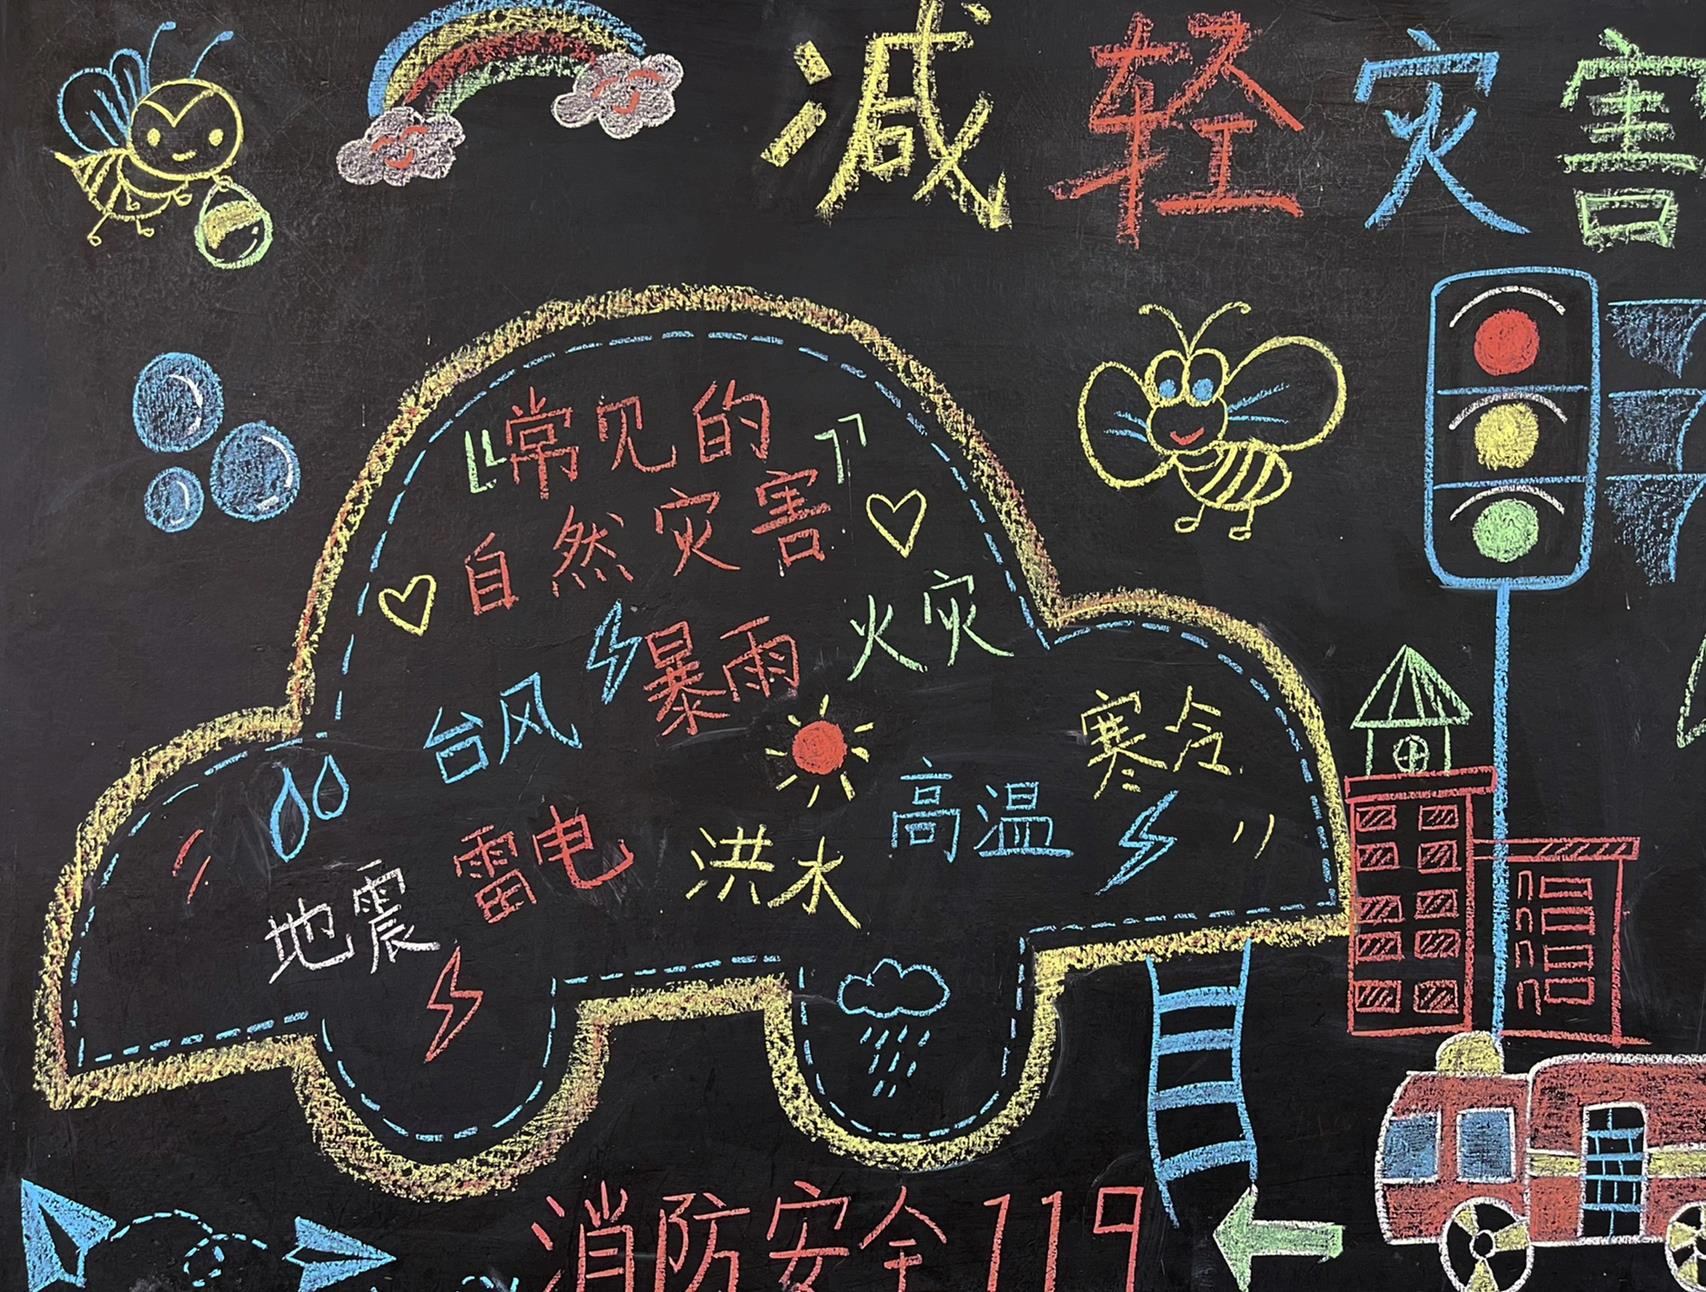 减轻灾害
『常见的
自然灾害』
火灾
暴雨
台风
寒冷
高温
雷电
洪水
地震
消防安全119